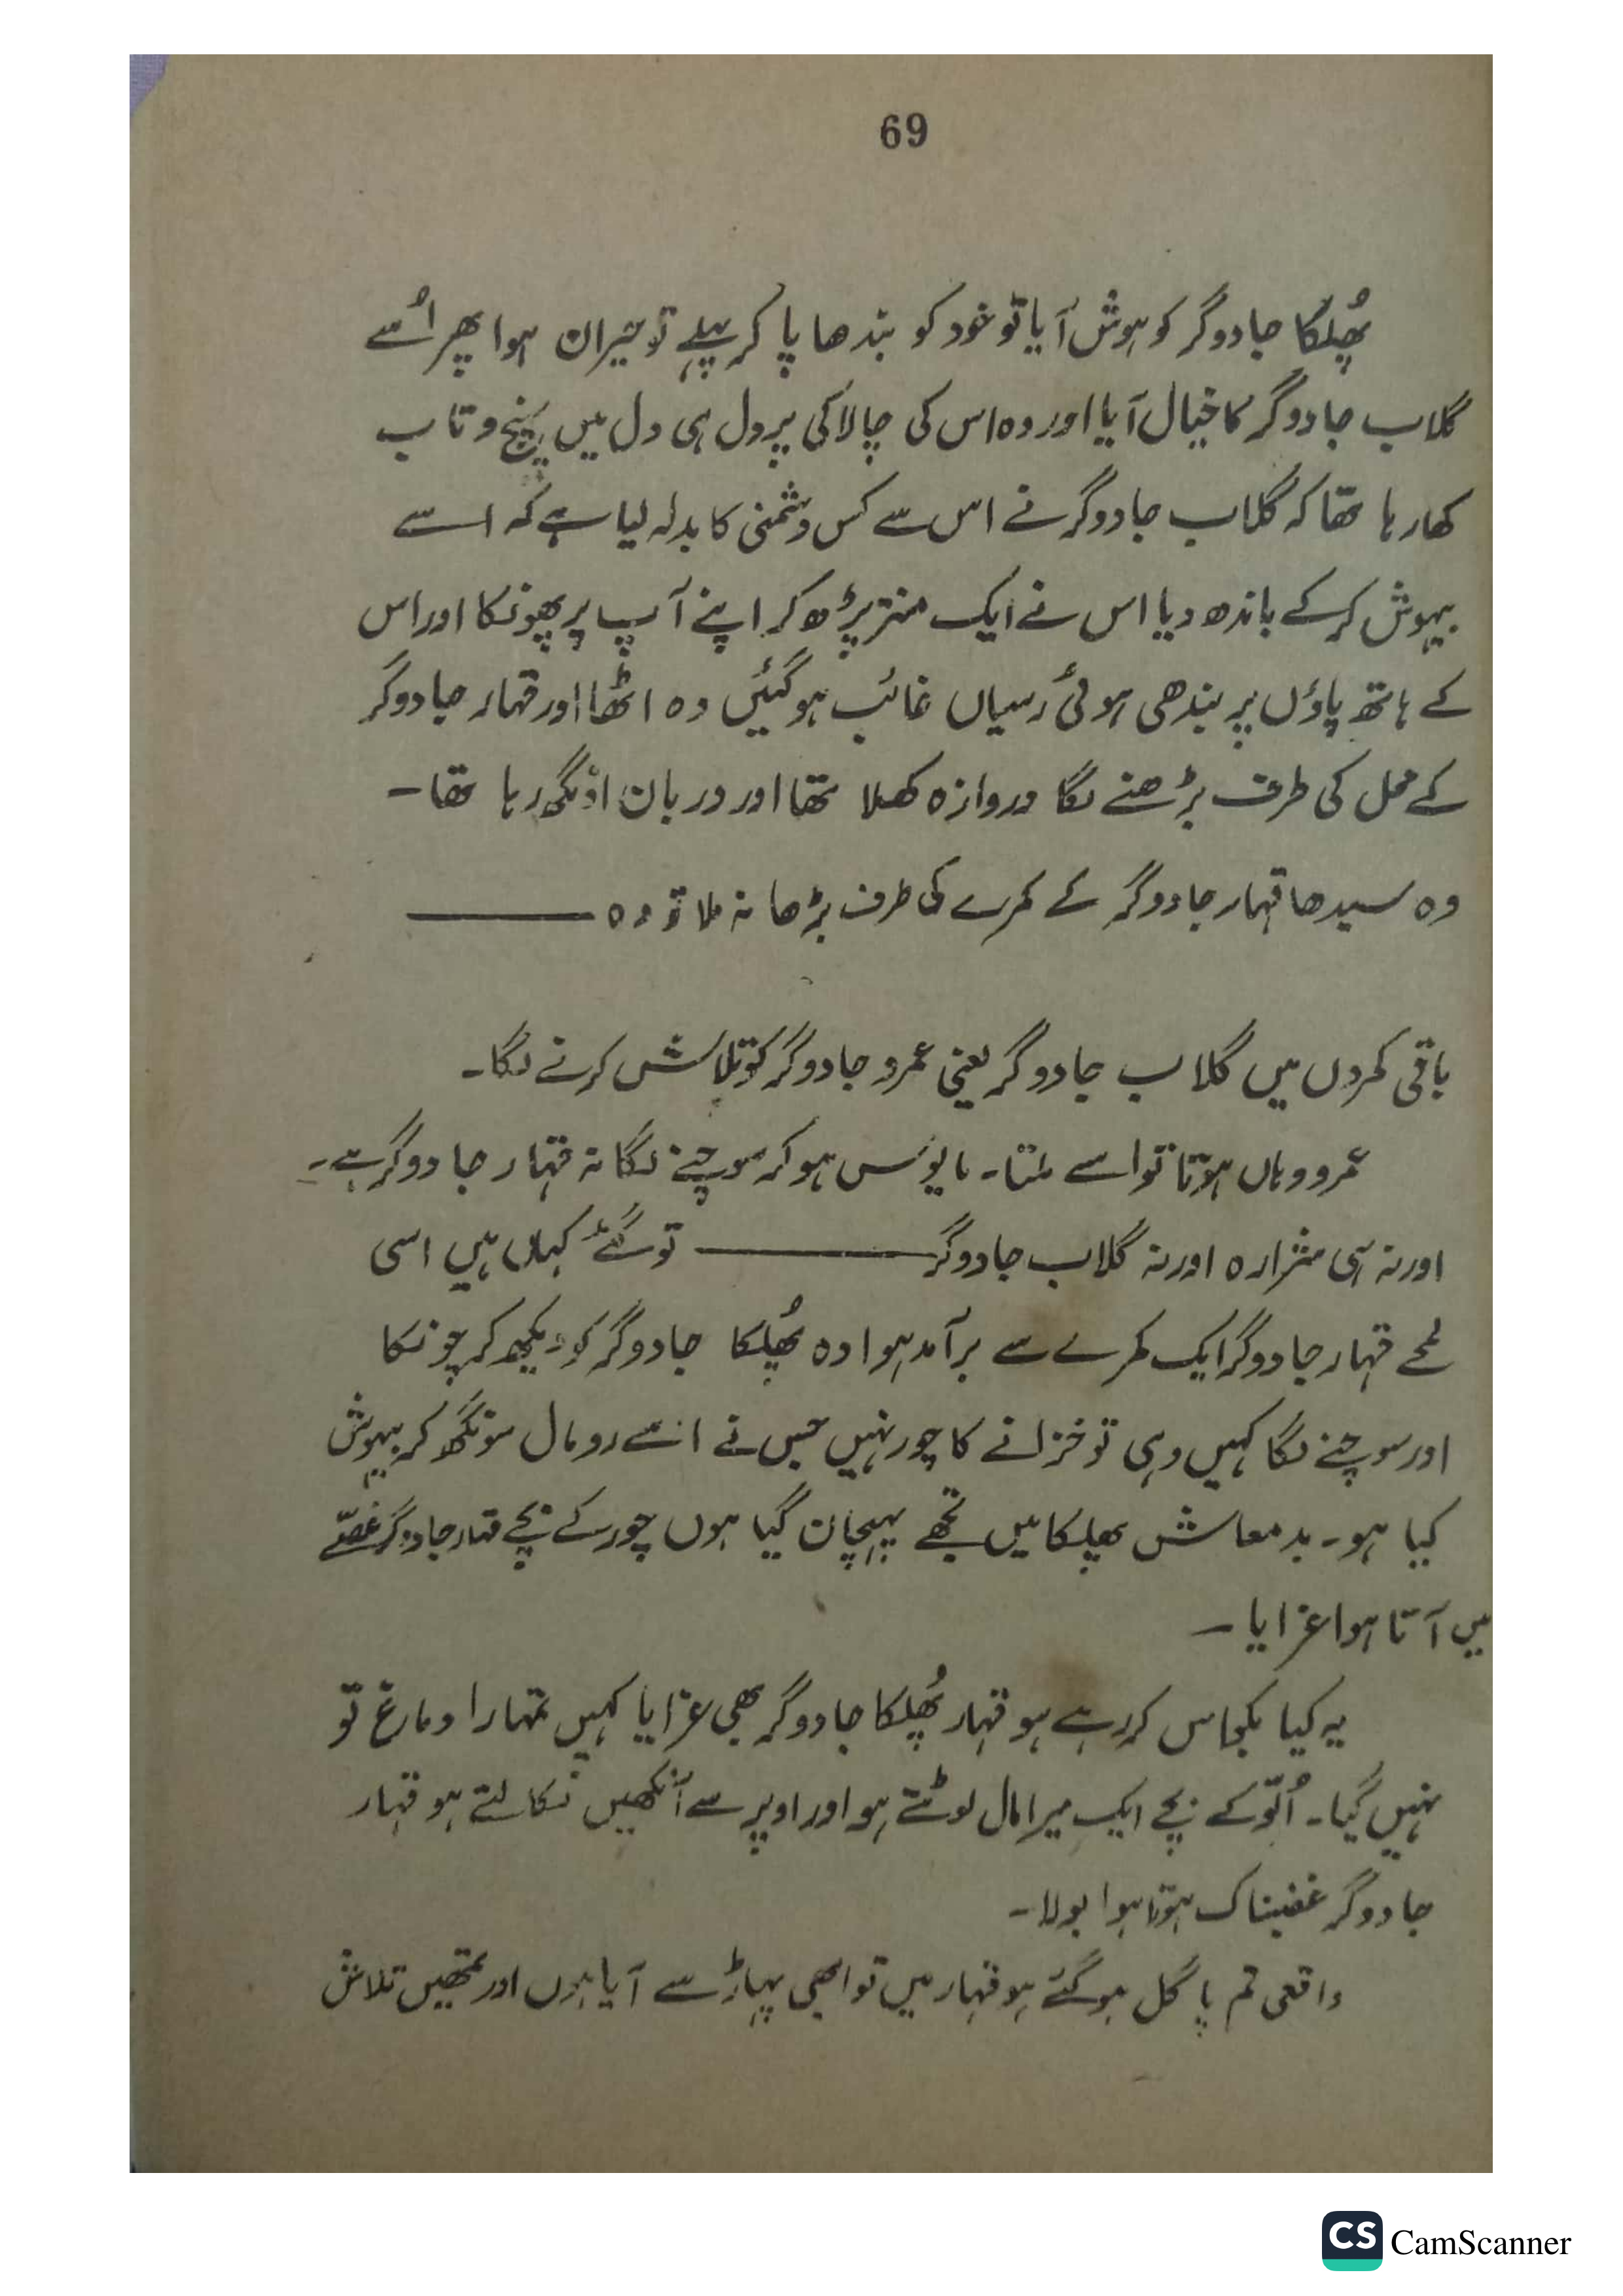 69
پُھلکا جادوگر کو ہوش آیا تو خود کو بندھا پا کر پہلے تو حیران ہوا پھر اُسے
گلاب جادوگر کا خیال آیا اور وہ اس کی چالاکی پر دل ہی دل میں پیچ و تاب
کھا رہا تھا کہ گلاب جادوگر نے اس سے کس دشمنی کا بدلہ لیا ہے کہ اسے
بیہوش کر کے باندھ دیا اس نے ایک منتر پڑھ کر اپنے آپ پر پھونکا اور اس
کے ہاتھ پاؤں پر بندھی ہوئی رسیاں غائب ہو گئیں وہ اٹھا اور قہار جادوگر
کے محل کی طرف بڑھنے لگا دروازہ کھلا تھا اور دربان اونگھ رہا تھا۔
وہ سیدھا قہار جادوگر کے کمرے کی طرف بڑھا نہ ملا تو وہ ———
باقی کمروں میں گلاب جادوگر یعنی عمرو جادوگر کو تلاش کرنے لگا۔
عمرو وہاں ہوتا تو اسے ملتا۔ مایوس ہو کر سوچنے لگا نہ قہار جادوگر ہے۔
اور نہ ہی شرارہ اور نہ گلاب جادوگر ——— تو گئے کہاں ہیں اسی
لمحے قہار جادوگر ایک کمرے سے برآمد ہوا وہ پُھلکا جادوگر کو دیکھ کر چونکا
اور سوچنے لگا کہیں وہی تو خزانے کا چور نہیں جس نے اسے رومال سونگھ کر بیہوش
کیا ہو۔ بدمعاش پھلکا میں تجھے پہچان گیا ہوں چور کے بچے قہار جادوگر غصّے
میں آتا ہوا غرایا۔
یہ کیا بکواس کر رہے ہو قہار پُھلکا جادوگر بھی غرایا کہیں تمہارا دماغ تو
نہیں گیا۔ اُلّو کے بچے ایک میرا مال لوٹتے ہو اور اوپر سے آنکھیں نکالتے ہو قہار
جادوگر غضبناک ہوتا ہوا بولا۔
واقعی تم پاگل ہو گئے ہو قہار میں تو ابھی پہاڑ سے آیا ہوں اور تمھیں تلاش
CS CamScanner